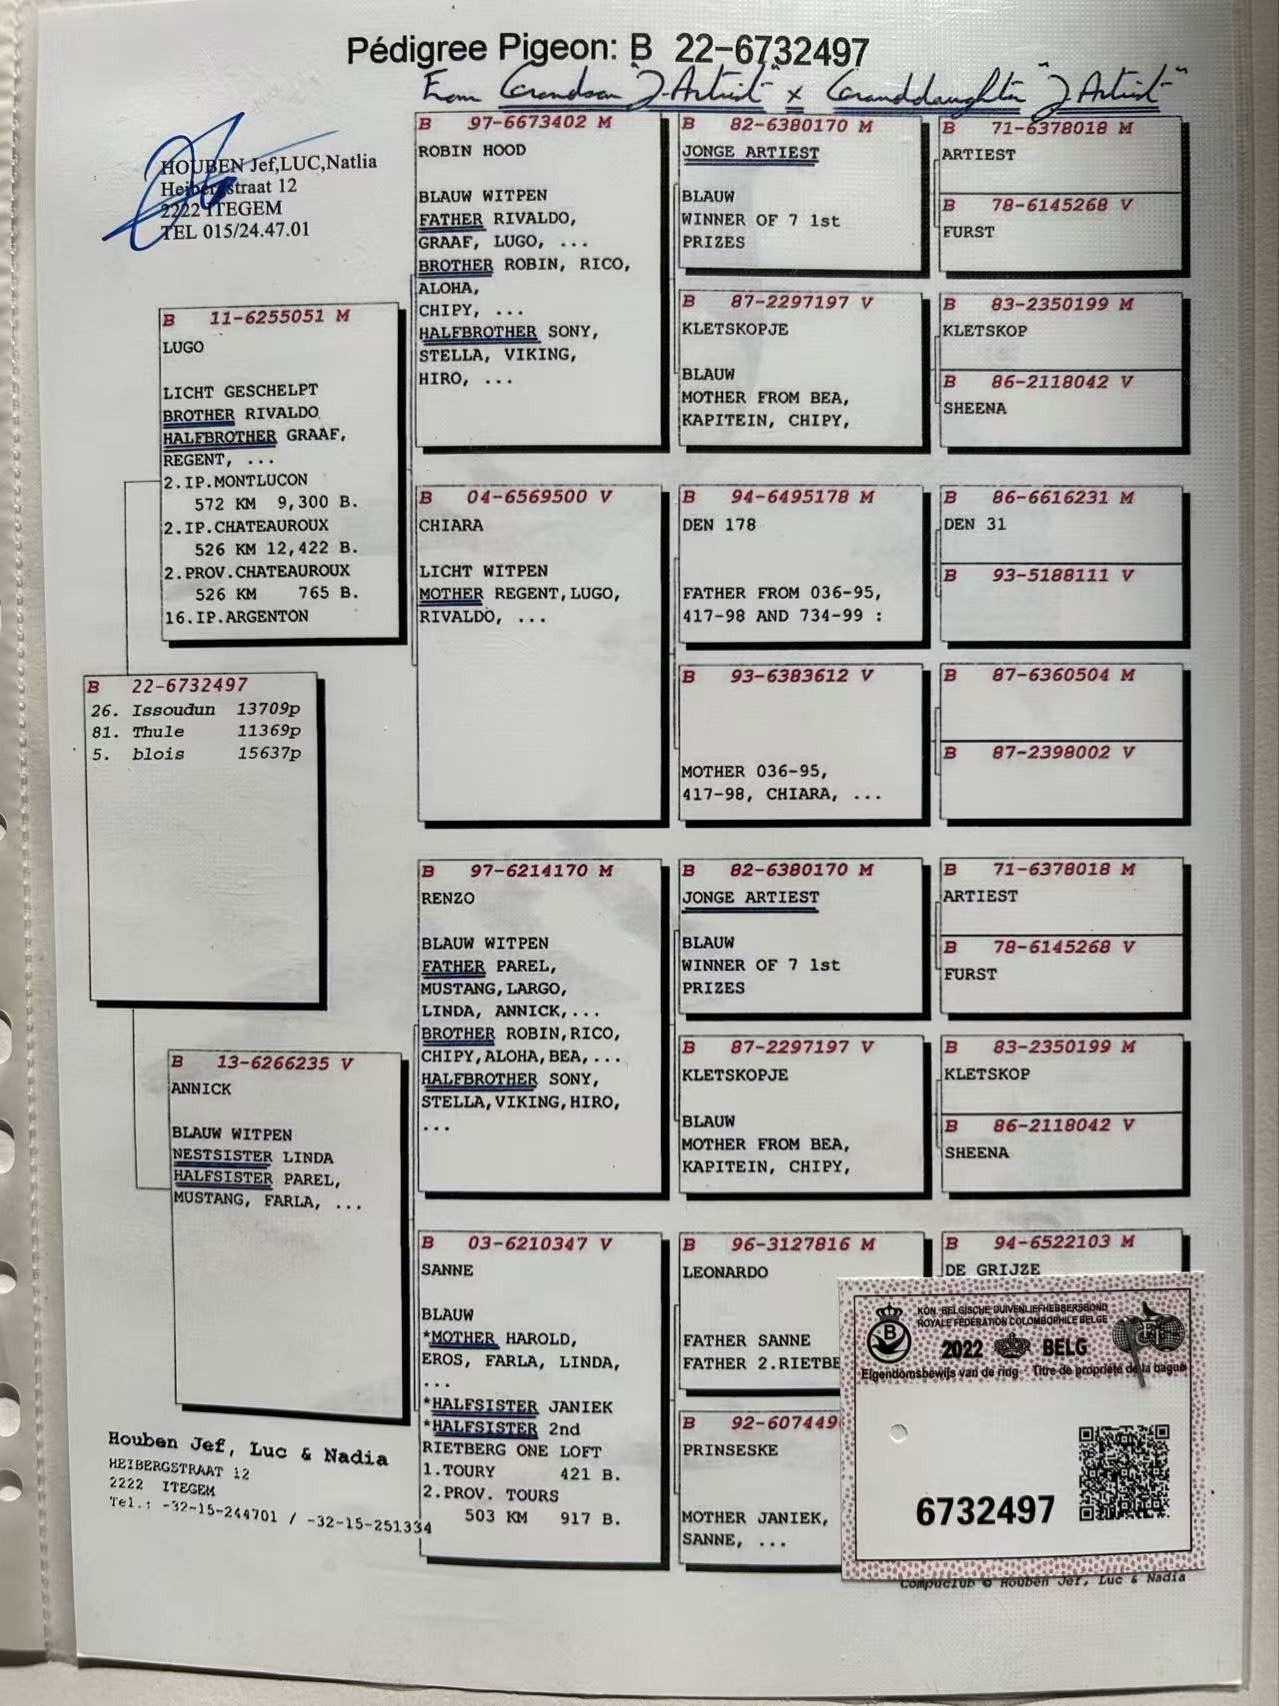 Pédigree Pigeon: B 22-6732497
From Grandson "J. Artist" x Granddaughter "J. Artist"
HOUBEN Jef,LUC,Natlia
Heibergstraat 12
2222 ITEGEM
TEL 015/24.47.01
B 11-6255051 M
LUGO
LICHT GESCHELPT
BROTHER RIVALDO
HALFBROTHER GRAAF,
REGENT, ...
2.IP.MONTLUCON
572 KM 9,300 B.
2.IP.CHATEAUROUX
526 KM 12,422 B.
2.PROV.CHATEAUROUX
526 KM 765 B.
16.IP.ARGENTON
B 22-6732497
26. Issoudun 13709p
81. Thule 11369p
5. blois 15637p
B 13-6266235 V
ANNICK
BLAUW WITPEN
NESTSISTER LINDA
HALFSISTER PAREL,
MUSTANG, FARLA, ...
Houben Jef, Luc & Nadia
HEIBERGSTRAAT 12
2222 ITEGEM
Tel.: -32-15-244701 / -32-15-251334
B 97-6673402 M
ROBIN HOOD
BLAUW WITPEN
FATHER RIVALDO,
GRAAF, LUGO, ...
BROTHER ROBIN, RICO,
ALOHA,
CHIPY, ...
HALFBROTHER SONY,
STELLA, VIKING,
HIRO, ...
B 04-6569500 V
CHIARA
LICHT WITPEN
MOTHER REGENT,LUGO,
RIVALDO, ...
B 97-6214170 M
RENZO
BLAUW WITPEN
FATHER PAREL,
MUSTANG,LARGO,
LINDA, ANNICK,...
BROTHER ROBIN,RICO,
CHIPY,ALOHA,BEA,...
HALFBROTHER SONY,
STELLA,VIKING,HIRO,
...
B 03-6210347 V
SANNE
BLAUW
*MOTHER HAROLD,
EROS, FARLA, LINDA,
...
*HALFSISTER JANIEK
*HALFSISTER 2nd
RIETBERG ONE LOFT
1.TOURY 421 B.
2.PROV. TOURS
503 KM 917 B.
B 82-6380170 M
JONGE ARTIEST
BLAUW
WINNER OF 7 1st
PRIZES
B 87-2297197 V
KLETSKOPJE
BLAUW
MOTHER FROM BEA,
KAPITEIN, CHIPY,
B 94-6495178 M
DEN 178
FATHER FROM 036-95,
417-98 AND 734-99 :
B 93-6383612 V
MOTHER 036-95,
417-98, CHIARA, ...
B 82-6380170 M
JONGE ARTIEST
BLAUW
WINNER OF 7 1st
PRIZES
B 87-2297197 V
KLETSKOPJE
BLAUW
MOTHER FROM BEA,
KAPITEIN, CHIPY,
B 96-3127816 M
LEONARDO
FATHER SANNE
FATHER 2.RIETBE
B 92-607449
PRINSESKE
MOTHER JANIEK,
SANNE, ...
B 71-6378018 M
ARTIEST
B 78-6145268 V
FURST
B 83-2350199 M
KLETSKOP
B 86-2118042 V
SHEENA
B 86-6616231 M
DEN 31
B 93-5188111 V
B 87-6360504 M
B 87-2398002 V
B 71-6378018 M
ARTIEST
B 78-6145268 V
FURST
B 83-2350199 M
KLETSKOP
B 86-2118042 V
SHEENA
B 94-6522103 M
DE GRIJZE
KON. BELGISCHE DUIVENLIEFHEBBERSBOND
ROYALE FEDERATION COLOMBOPHILE BELGE
B
2022 BELG
Eigendomsbewijs van de ring - Titre de propriété de la bague
6732497
Compuclub © Houben Jef, Luc & Nadia